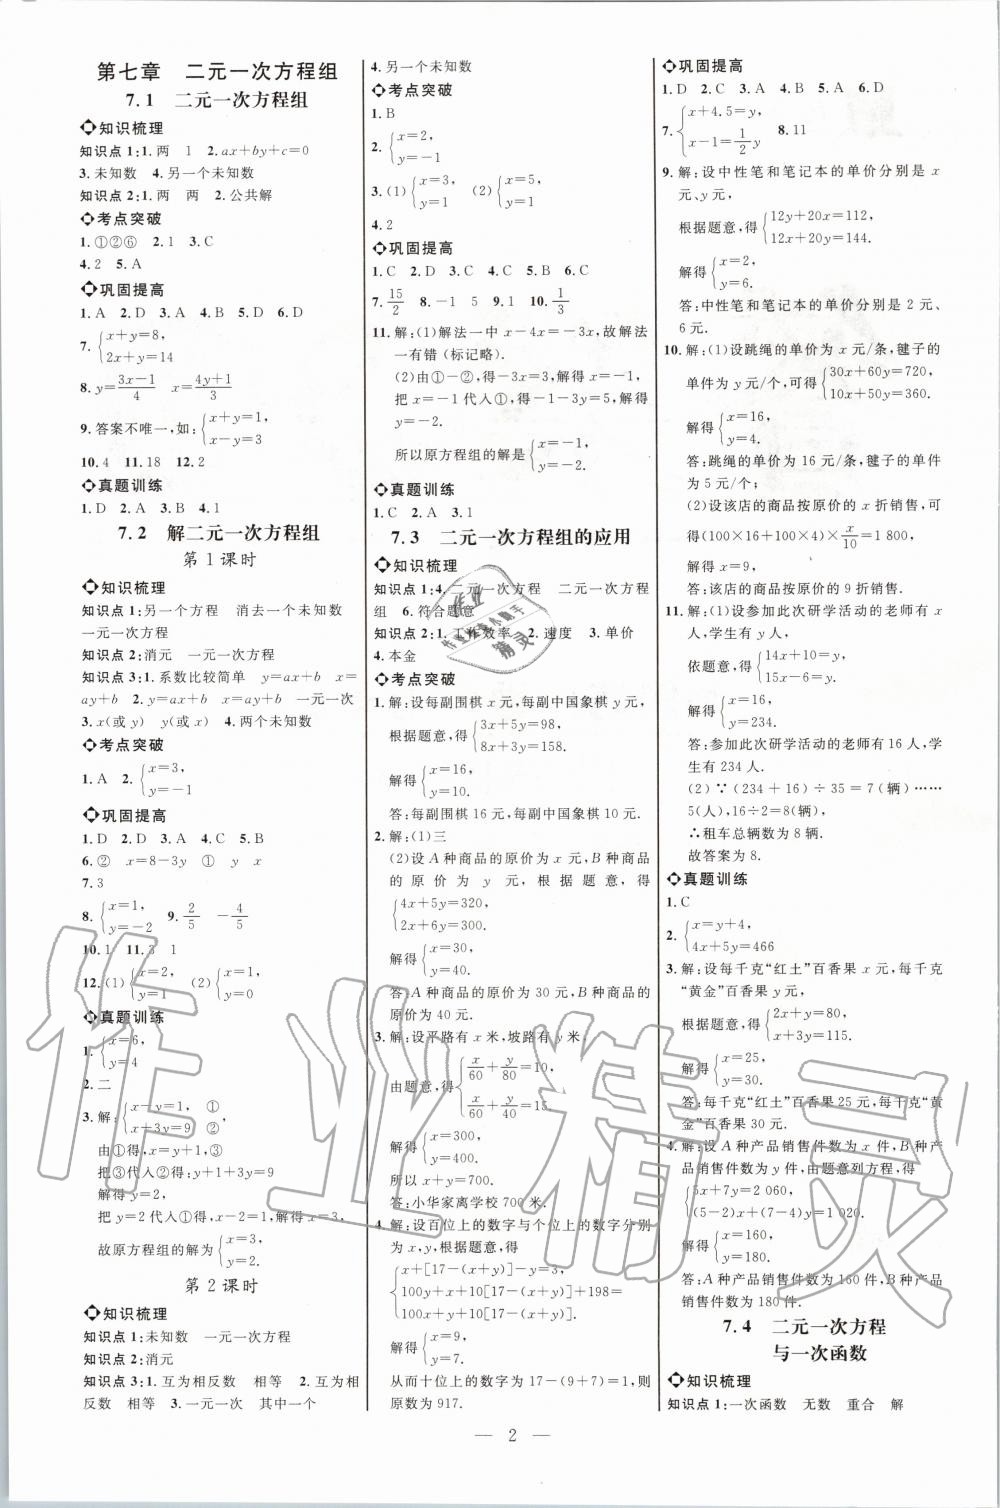 第七章　二元一次方程组
7.1　二元一次方程组
知识梳理
知识点 1:1. 两　1　2. ax+by+c=0
3. 未知数　4. 另一个未知数
知识点 2:1. 两　两　2. 公共解
考点突破
1. ①②⑥　2. 1　3. C
4. 2　5. A
巩固提高
1. A　2. D　3. A　4. B　5. D　6. D
7. {x+y=8,
2x+y=14
8. y=(3x-1)/4　x=(4y+1)/3
9. 答案不唯一,如:{x+y=1,
x-y=3
10. 4　11. 18　12. 2
真题训练
1. D　2. A　3. B　4. 1
7.2　解二元一次方程组
第 1 课时
知识梳理
知识点 1:另一个方程　消去一个未知数
一元一次方程
知识点 2:消元　一元一次方程
知识点 3:1. 系数比较简单　y=ax+b　x=
ay+b　2. y=ax+b　x=ay+b　一元一次
3. x(或 y)　y(或 x)　4. 两个未知数
考点突破
1. A　2. {x=3,
y=-1
巩固提高
1. D　2. D　3. A　4. C　5. B
6. ②　x=8-3y　①　y　x
7. 3
8. {x=1,
y=-2　9. 2/5　-4/5
10. 1　11. 3　1
12. (1){x=2,
y=1　(2){x=1,
y=0
真题训练
1. {x=6,
y=4
2. 二
3. 解:{x-y=1,　①
x+3y=9　②
由①得,x=y+1,③
把③代入②得:y+1+3y=9
解得 y=2,
把 y=2 代入①得,x-2=1,解得 x=3,
故原方程组的解为{x=3,
y=2.
第 2 课时
知识梳理
知识点 1:未知数　一元一次方程
知识点 2:消元
知识点 3:1. 互为相反数　相等　2. 互为相
反数　相等　3. 一元一次　其中一个
4. 另一个未知数
考点突破
1. B
2. {x=2,
y=-1
3. (1){x=3,
y=1　(2){x=5,
y=1
4. 2
巩固提高
1. C　2. D　3. C　4. C　5. B　6. C
7. 15/2　8. -1　5　9. 1　10. 1/3
11. 解:(1)解法一中 x-4x=-3x,故解法
一有错(标记略).
(2)由①-②,得-3x=3,解得 x=-1,
把 x=-1 代入①,得-1-3y=5,解得
y=-2.
所以原方程组的解是{x=-1,
y=-2.
真题训练
1. C　2. A　3. 1
7.3　二元一次方程组的应用
知识梳理
知识点 1:4. 二元一次方程　二元一次方程
组　6. 符合题意
知识点 2:1. 工作效率　2. 速度　3. 单价
4. 本金
考点突破
1. 解:设每副围棋 x 元,每副中国象棋 y 元,
根据题意,得{3x+5y=98,
8x+3y=158.
解得{x=16,
y=10.
答:每副围棋 16 元,每副中国象棋 10 元.
2. 解:(1)三
(2)设 A 种商品的原价为 x 元,B 种商品
的原价为 y 元,根据题意,得
{4x+5y=320,
2x+6y=300.
解得{x=30,
y=40.
答:A 种商品的原价为 30 元,B 种商品的
原价为 40 元.
3. 解:设平路有 x 米,坡路有 y 米,
由题意,得{x/60+y/80=10,
x/60+y/40=15.
解得{x=300,
y=400.
所以 x+y=700.
答:小华家离学校 700 米.
4. 解:设百位上的数字与个位上的数字分别
为 x,y,根据题意,得
{x+[17-(x+y)]=y,
100y+x+10[17-(x+y)]+198=
100x+y+10[17-(x+y)].
解得{x=9,
y=7.
从而十位上的数字为 17-(9+7)=1,则
原数为 917.
巩固提高
1. D　2. C　3. A　4. B　5. A　6. D
7. {x+4.5=y,
x-1=1/2 y　8. 11
9. 解:设中性笔和笔记本的单价分别是 x
元、y 元,
根据题意,得{12y+20x=112,
12x+20y=144.
解得{x=2,
y=6.
答:中性笔和笔记本的单价分别是 2 元、
6 元.
10. 解:(1)设跳绳的单价为 x 元/条,毽子的
单件为 y 元/个,可得{30x+60y=720,
10x+50y=360.
解得{x=16,
y=4.
答:跳绳的单价为 16 元/条,毽子的单件
为 5 元/个;
(2)设该店的商品按原价的 x 折销售,可
得(100×16+100×4)×x/10=1 800,
解得 x=9,
答:该店的商品按原价的 9 折销售.
11. 解:(1)设参加此次研学活动的老师有 x
人,学生有 y 人,
依题意,得{14x+10=y,
15x-6=y.
解得{x=16,
y=234.
答:参加此次研学活动的老师有 16 人,学
生有 234 人.
(2)∵(234+16)÷35=7(辆)……
5(人),16÷2=8(辆),
∴租车总辆数为 8 辆.
故答案为 8.
真题训练
1. C
2. {x=y+4,
4x+5y=466
3. 解:设每千克“红土”百香果 x 元,每千克
“黄金”百香果 y 元,
由题意,得{2x+y=80,
x+3y=115.
解得{x=25,
y=30.
答:每千克“红土”百香果 25 元,每千克“黄
金”百香果 30 元.
4. 解:设 A 种产品销售件数为 x 件,B 种产
品销售件数为 y 件,由题意列方程,得
{5x+7y=2 060,
(5-2)x+(7-4)y=1 020.
解得{x=160,
y=180.
答:A 种产品销售件数为 160 件,B 种产品
销售件数为 180 件.
7.4　二元一次方程
与一次函数
知识梳理
知识点 1:一次函数　无数　重合　解
— 2 —
作业精灵